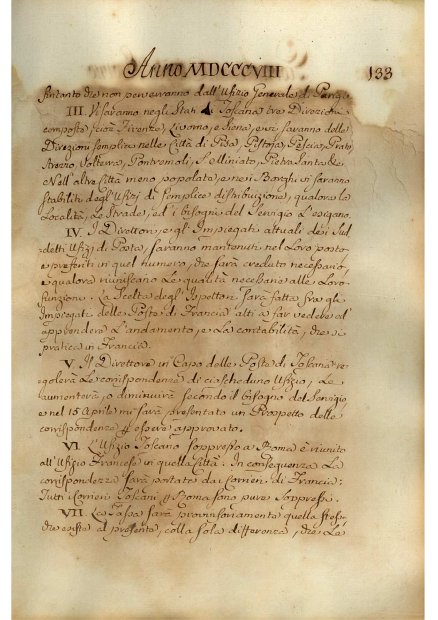 Anno MDCCCVIII 133
fintanto che non perverranno dall'Ufizio Generale di Parigi
III. Vi saranno negli Stati di Toscana tre Direzioni
composte, cioè Firenze, Livorno, e Siena, e vi saranno delle
Direzioni semplici nelle Città di Pisa, Pistoja, Pescia, Prato
Arezzo, Volterra, Pontremoli, S. Miniato, Pietra Santa &c
Nell'altre Città meno popolate, e nei Borghi vi saranno
stabiliti degl'Ufizj di semplice distribuzione, qualora la
Località, Le Strade, ed i bisogni del Servizio L'esigano.
IV. I Direttori, e gl'Impiegati attuali dei Sud
detti Ufizj di Posta, saranno mantenuti nel Loro posto
e preferiti in quel numero, che sarà creduto necessario,
e qualora riuniscano Le qualità necessarie alle Loro
funzioni. La Scelta degl'Ispettori sarà fatta fra gl'
Impiegati delle Poste di Francia atti a far vedere ed
apprendere L'andamento, e La contabilità, che si
pratica in Francia.
V. Il Direttore in Capo delle Poste di Toscana re-
golerà Le corrispondenze di ciascheduno Ufizio, Le
aumenterà, o diminuirà secondo il bisogno del Servizio
e nel 15 Aprile mi sarà presentato un Prospetto delle
corrispondenze p essere approvato.
VI. L'Ufizio Toscano soppresso a Roma è riunito
all'Ufizio Francese in quella Città. In conseguenza La
corrispondenza sarà portata dai Corrieri di Francia:
Tutti i Corrieri Toscani p Roma sono pure Soppressi.
VII. La Tassa sarà provvisoriamente quella stessa
che esiste al presente, colla sola differenza, che Le